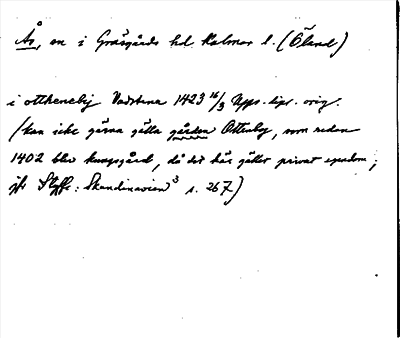 Ås, sn i Gräsgårds hd. Kalmar l. (Öland)
i ottheneby Vadstena 1423 16/3 Upps. dipl. orig.
(kan icke gärna gälla gården Ottenby, som redan
1402 blev kungsgård, då det här gäller privat egendom;
jfr Styffe: Skandinavien 3 s. 267)